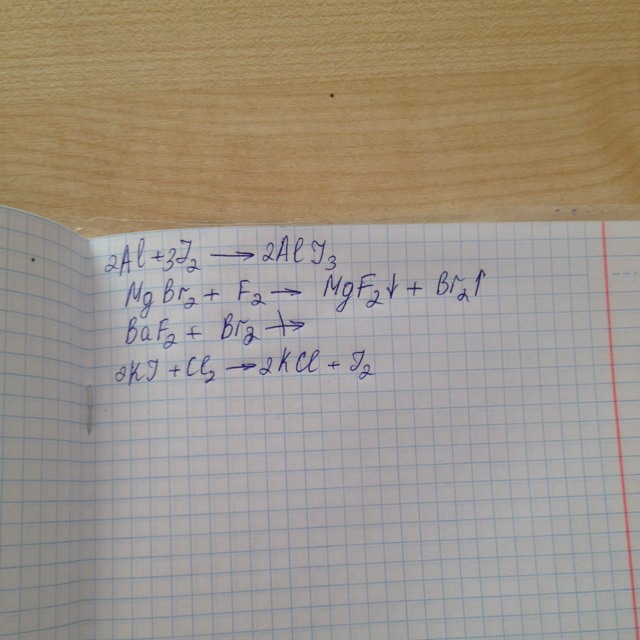 2Al + 3J₂ ⟶ 2AlJ₃
MgBr₂ + F₂ → MgF₂↓ + Br₂↑
BaF₂ + Br₂ ↛
2KJ + Cl₂ → 2KCl + J₂